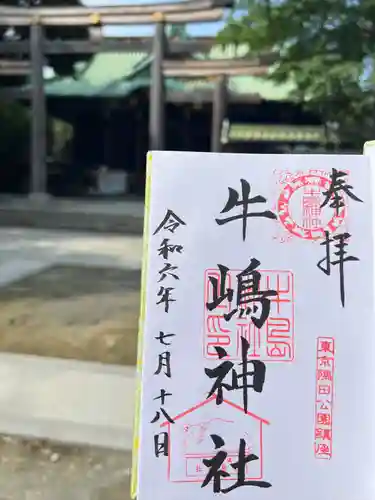 奉拝
牛嶋神社
牛島
神社
印
東京隅田公園鎮座
令和六年 七月 十八日